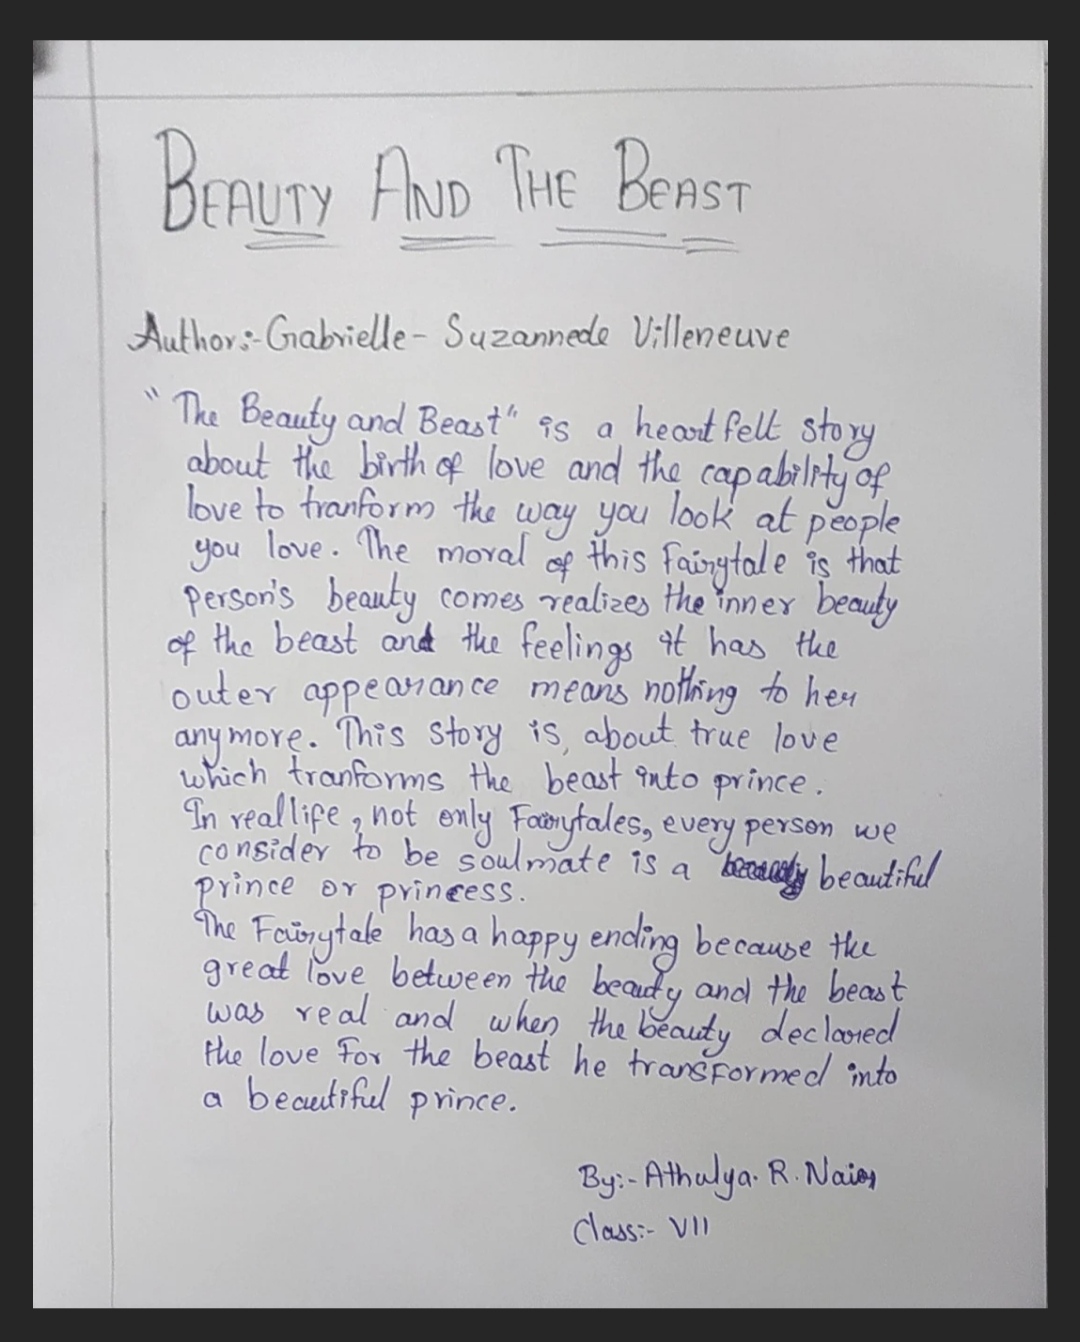 BEAUTY AND THE BEAST
Author:-Gabrielle- Suzannede Villeneuve
"The Beauty and Beast" is a heart felt story
about the birth of love and the capability of
love to tranform the way you look at people
you love. The moral of this Fairytale is that
person's beauty comes realizes the inner beauty
of the beast and the feelings it has the
outer appearance means nothing to her
anymore. This story is, about true love
which tranforms the beast into prince.
In real life, not only Fairytales, every person we
consider to be soulmate is a beautiful
prince or princess.
The Fairytale has a happy ending because the
great love between the beauty and the beast
was real and when the beauty declared
the love For the beast he transFormed into
a beautiful prince.
By:- Athulya. R. Nair
Class:- VII